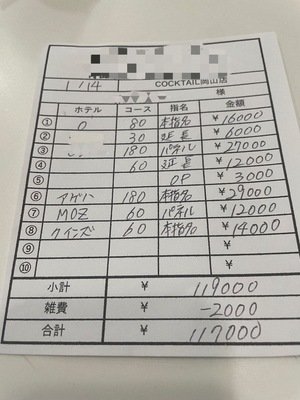 COCKTAIL岡山店
1/14 様
ホテル コース 指名 金額
① O 80 本指名 ¥16000
② 30 延長 ¥6000
③ 180 パネル ¥27000
④ 60 延長 ¥12000
⑤ OP ¥3000
⑥ アゲハ 180 本指名 ¥29000
⑦ MOZ 60 パネル ¥12000
⑧ クインズ 60 本指名 ¥14000
⑨ ¥
⑩ ¥
小計 ¥ 119000
雑費 ¥ -2000
合計 ¥ 117000